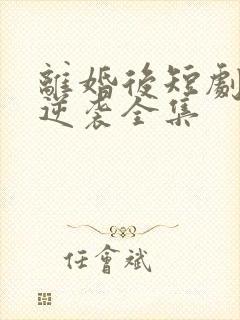 離婚後短劇
逆袭全集
任會斌